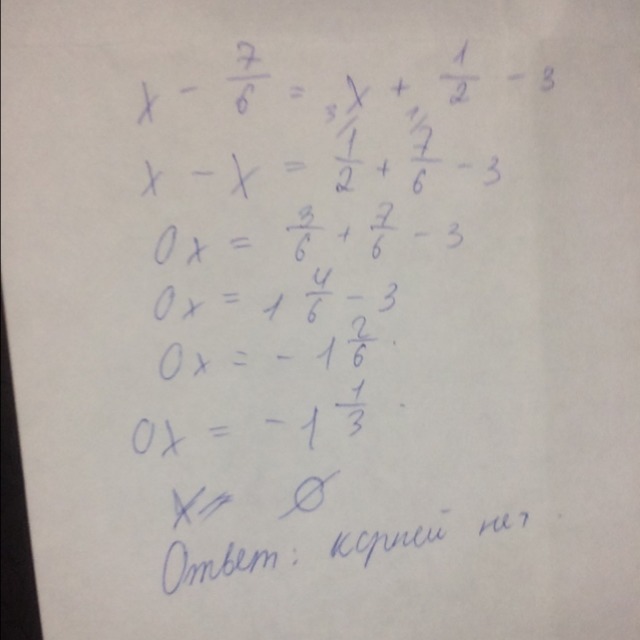 x - 7/6 = x + 1/2 - 3
x - x = 1/2 + 7/6 - 3
0x = 3/6 + 7/6 - 3
0x = 1 4/6 - 3
0x = - 1 2/6.
0x = - 1 1/3.
x = ∅
Ответ: корней нет.